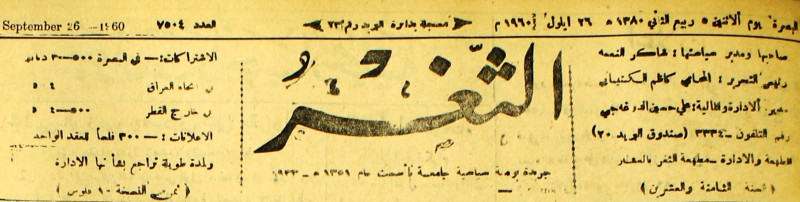 البصرة يوم الاثنين ٥ ربيع الثاني ١٣٨٠ ه ٢٦ ايلول ١٩٦٠ م
مسجلة بدائرة البريد رقم ٢٣
العدد ٧٥٠٤
September 26 - 1960
صاحبها ومدير سياستها : شاكر النعمه
رئيس التحرير : المحامي كاظم
مدير الادارة والمالية : علي حسين
رقم التلفون - ٣٣٣٤ (صندوق البريد ٢٠)
المطبعة والادارة - مطبعة الثغر بالعشار
( السنة الثامنة والعشرين )
الثغر
جريدة يومية سياسية جامعة تأسست عام ١٣٥١ ه - ١٩٣٣
الاشتراكات : - في البصرة ٥٠٠ - ٣
انحاء العراق ٥ ٤
خارج القطر ٥٠٠ - ٤ ٥
الاعلانات : - ٣٠٠ فلساً للعقد الواحد
ولمدة طويلة تراجع بشأنها الادارة
( ثمن النسخة ١٠ فلوس )